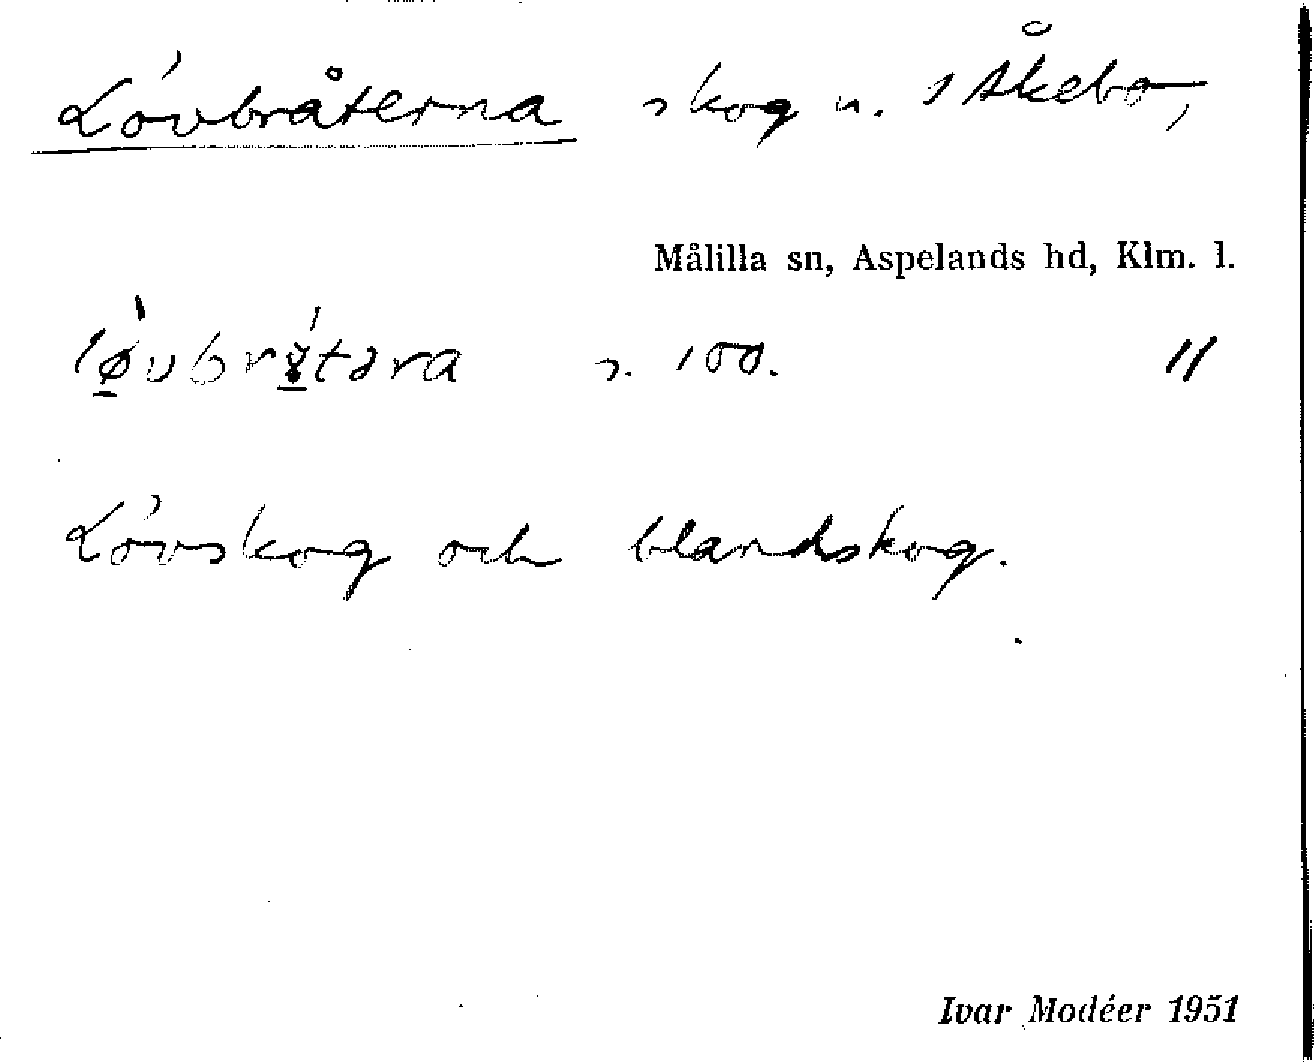 Lövbråterna skog n. 1 Åkebo,
Målilla sn, Aspelands hd, Klm. l.
s. 100. "
Lövskog och blandskog.
Ivar Modéer 1951